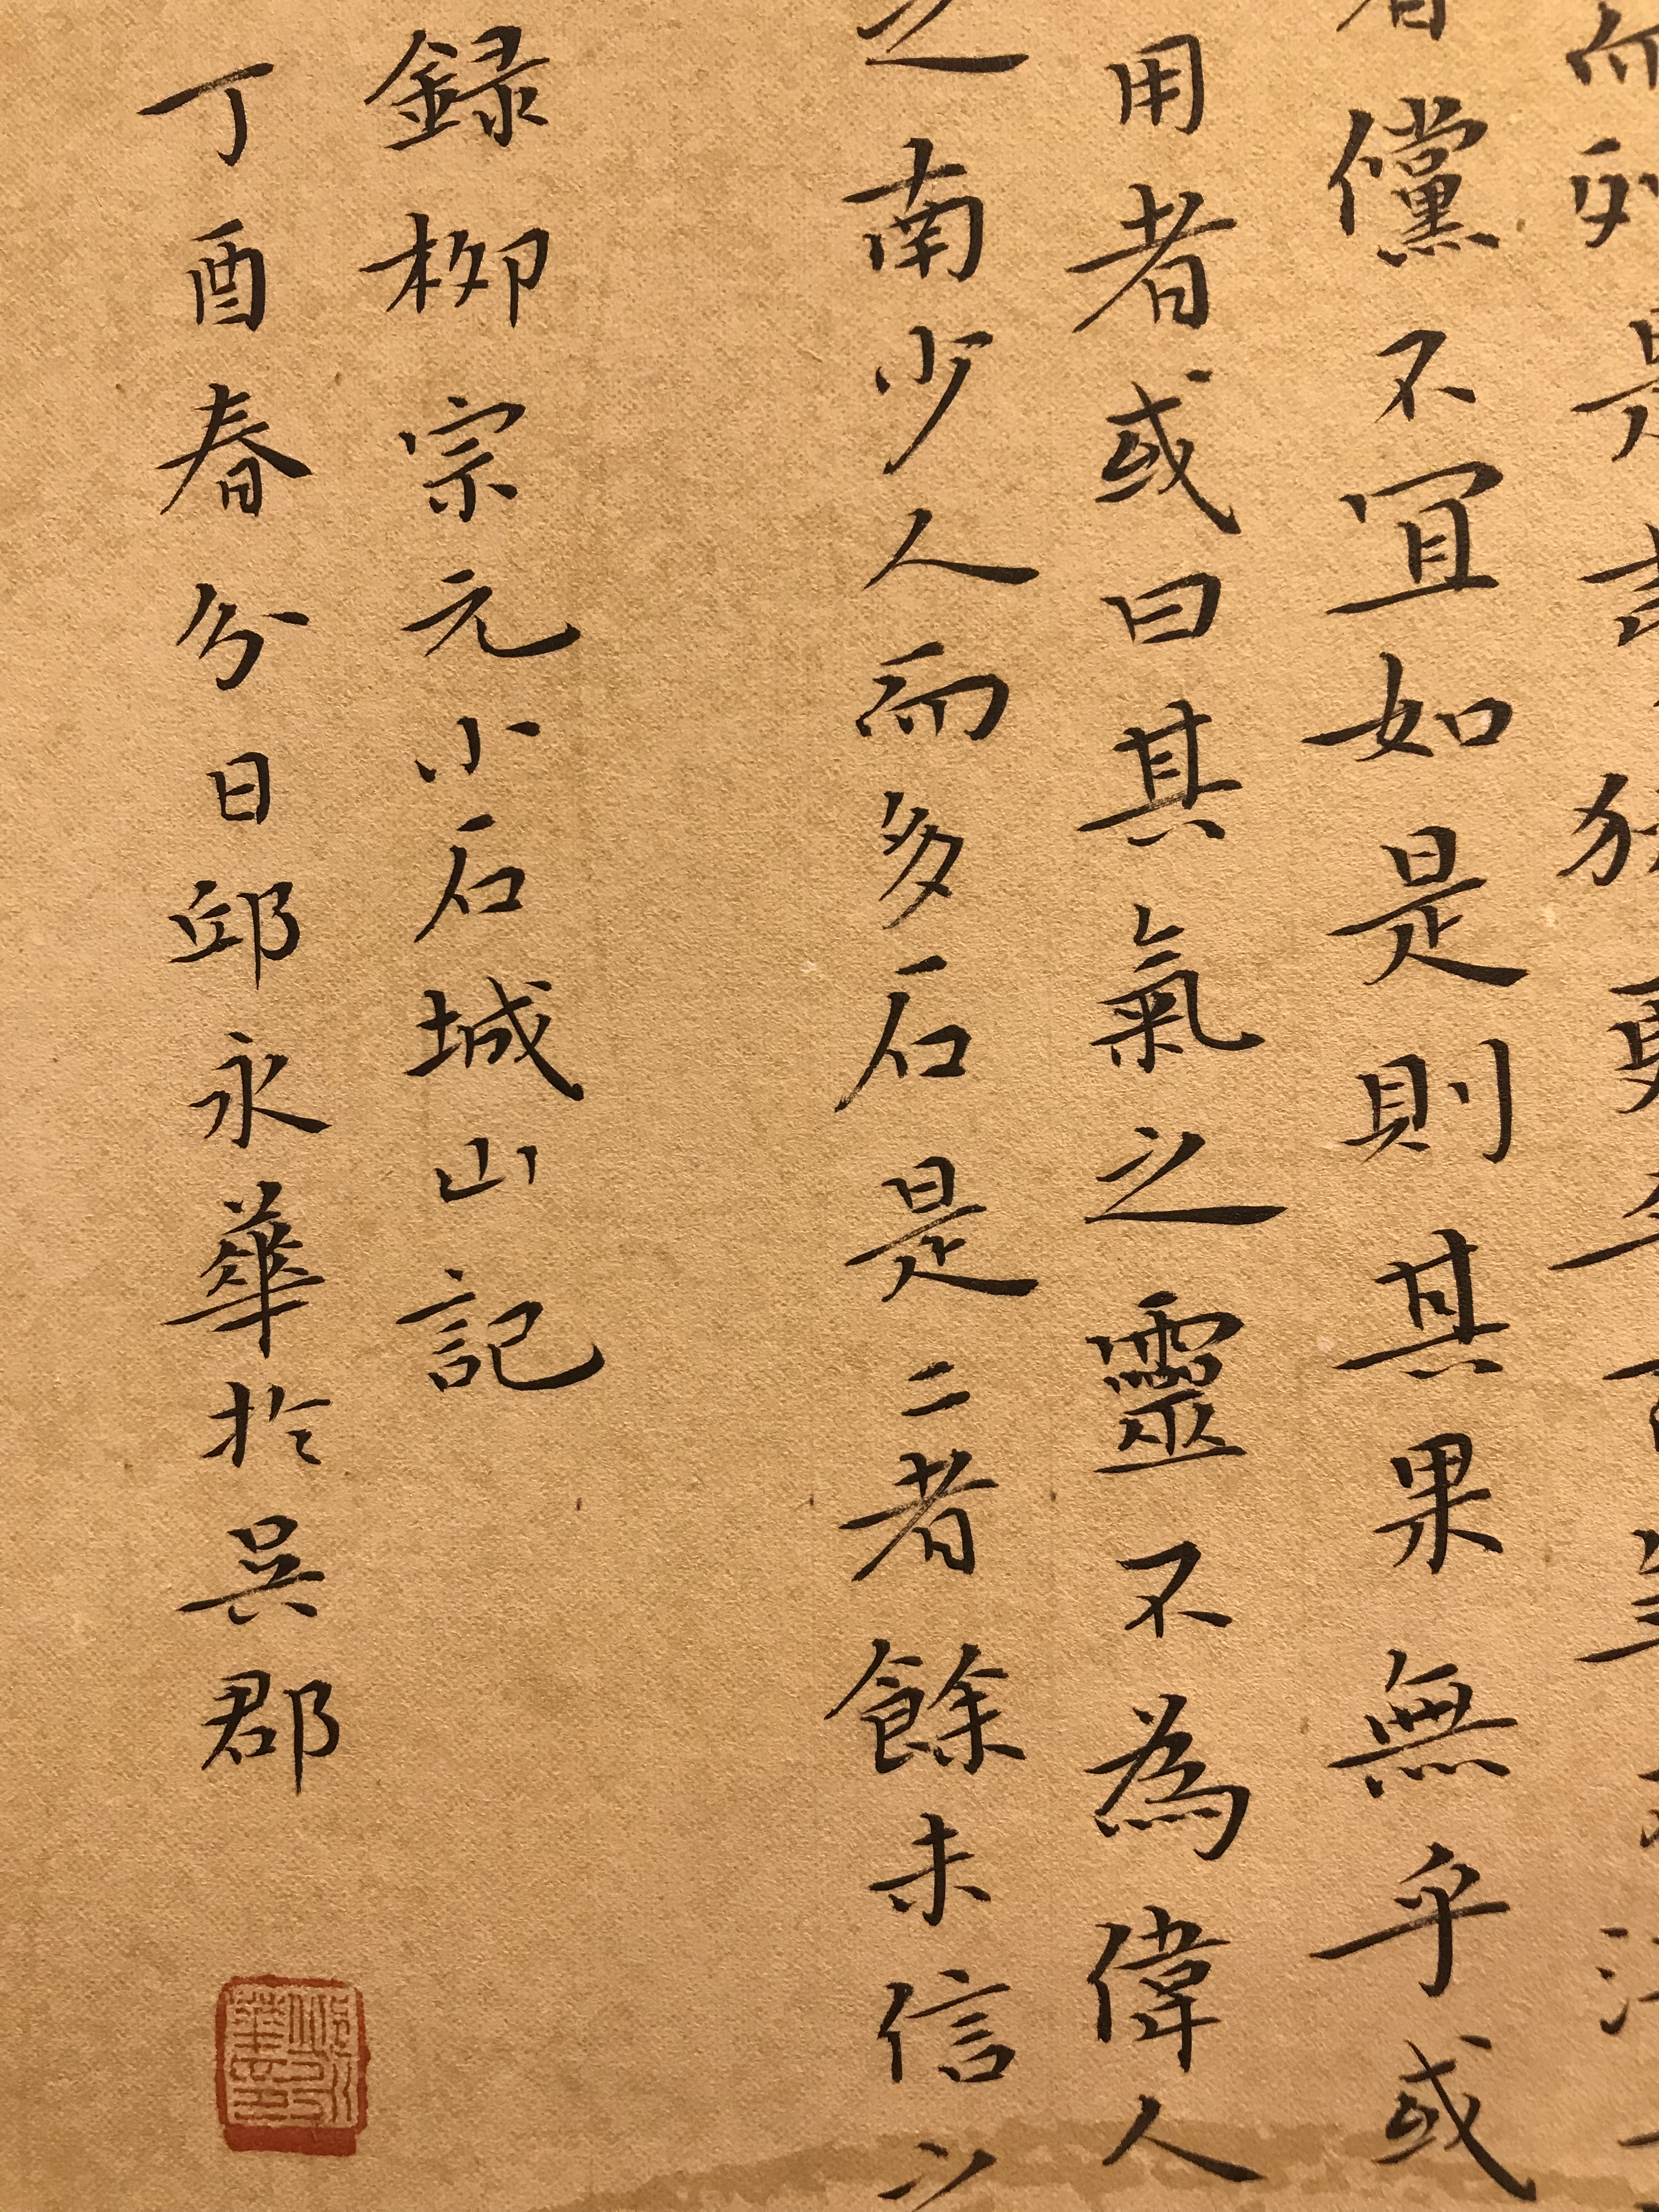 而列是
者儻不宜如是則其果無乎或
用者或曰其氣之靈不為偉人
之南少人而多石是二者餘未信
録柳宗元小石城山記
丁酉春分日邱永華於吳郡